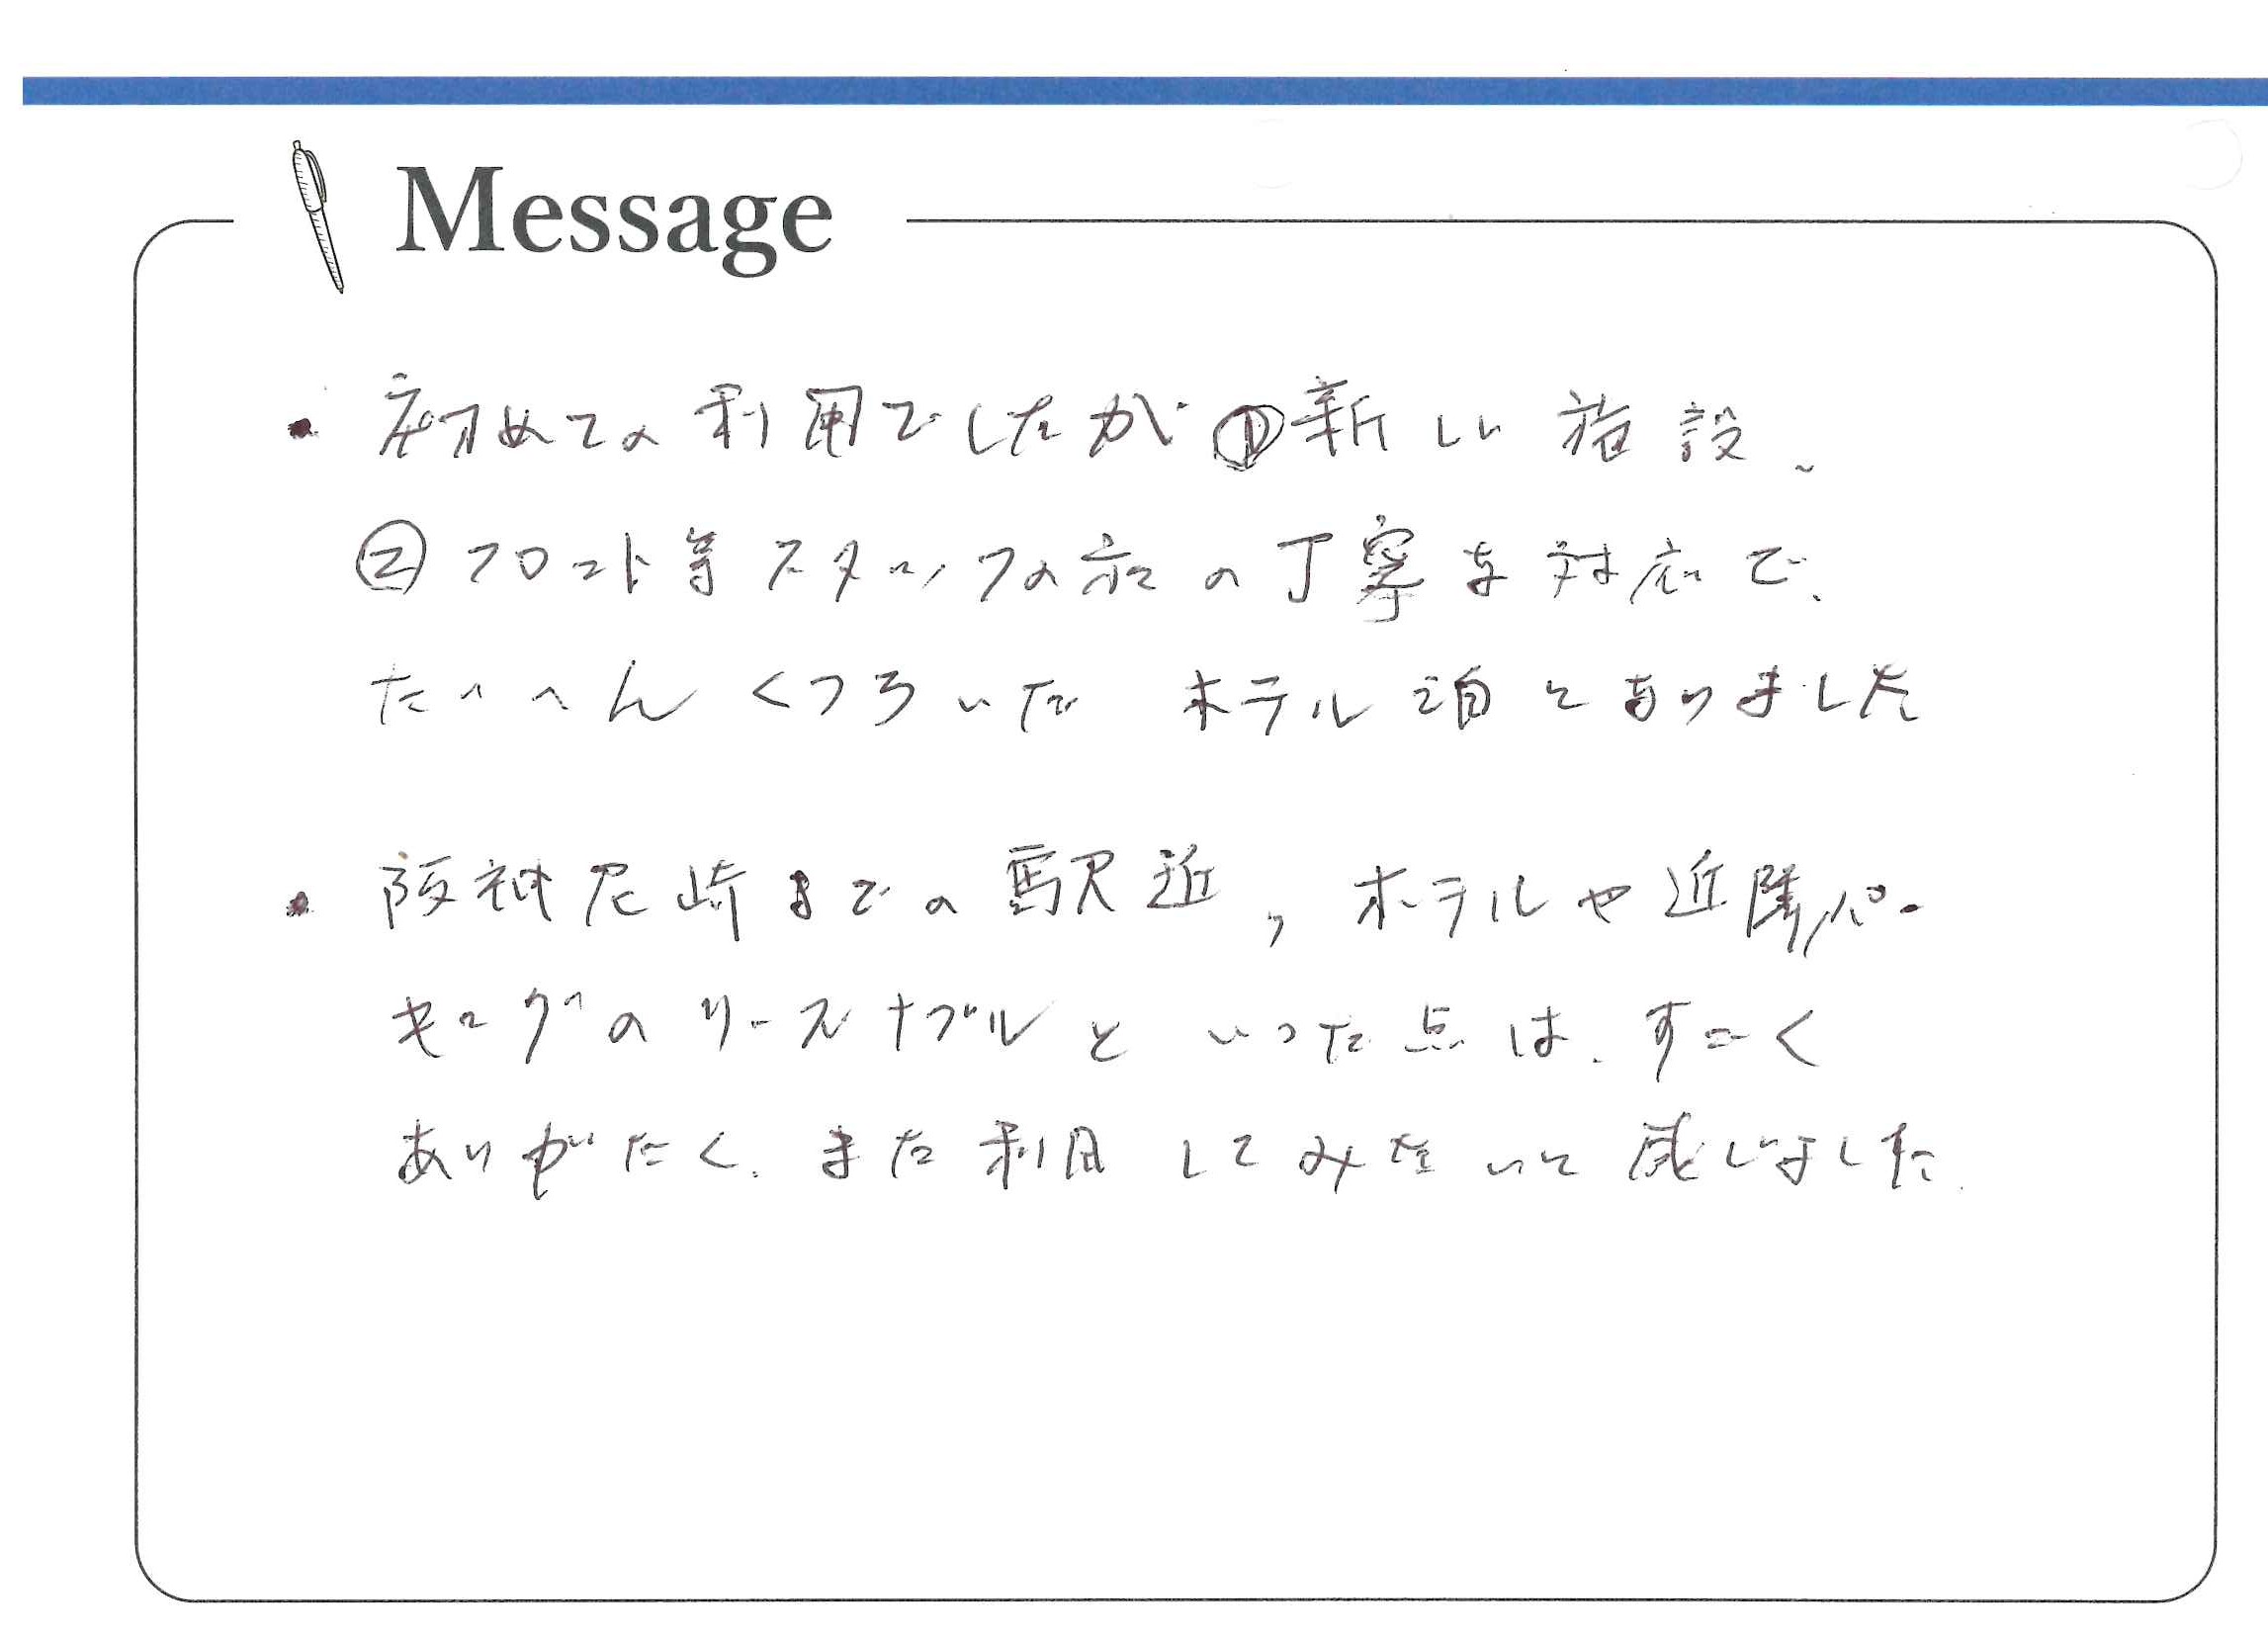 Message
・初めての利用でしたが①新しい施設、
②フロント等スタッフの方の丁寧な対応で、
たいへんくつろいだ ホテル泊となりました
・阪神尼崎までの駅近，ホテルや近隣パー
キングのリーズナブルといった点は、すごく
ありがたく、また利用してみたいと感じました